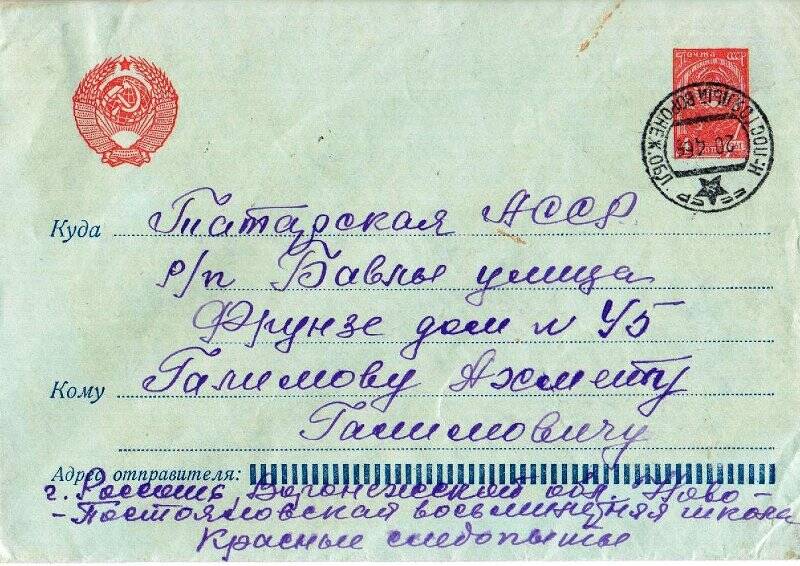 ПОЧТА
СССР
Куда Татарская АССР
р/п Бавлы улица
Фрунзе дом N 45
Кому Галимову Ахмету
Галимовичу
Адрес отправителя:
г. Россошь Воронежской обл. Ново-
-Постояловская восьмилетняя школа
Красные следопыты